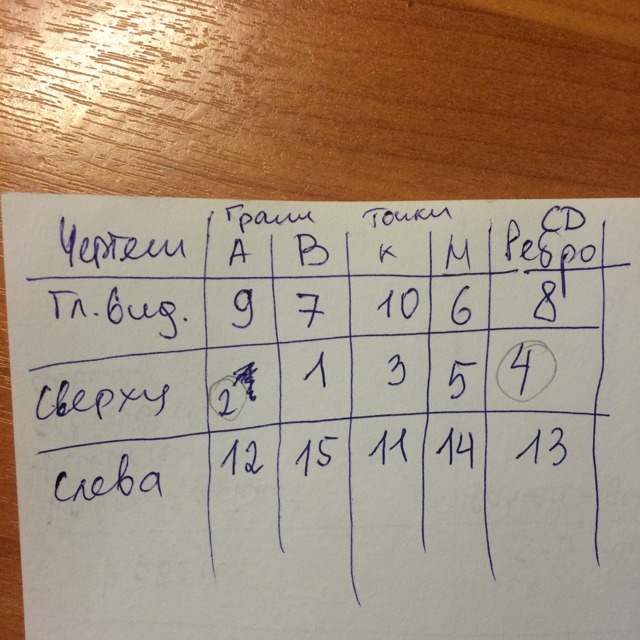 Грани Точки CD
Чертежи А В К М Ребро
Гл. вид. 9 7 10 6 8
Сверху 2 1 3 5 4
Слева 12 15 11 14 13